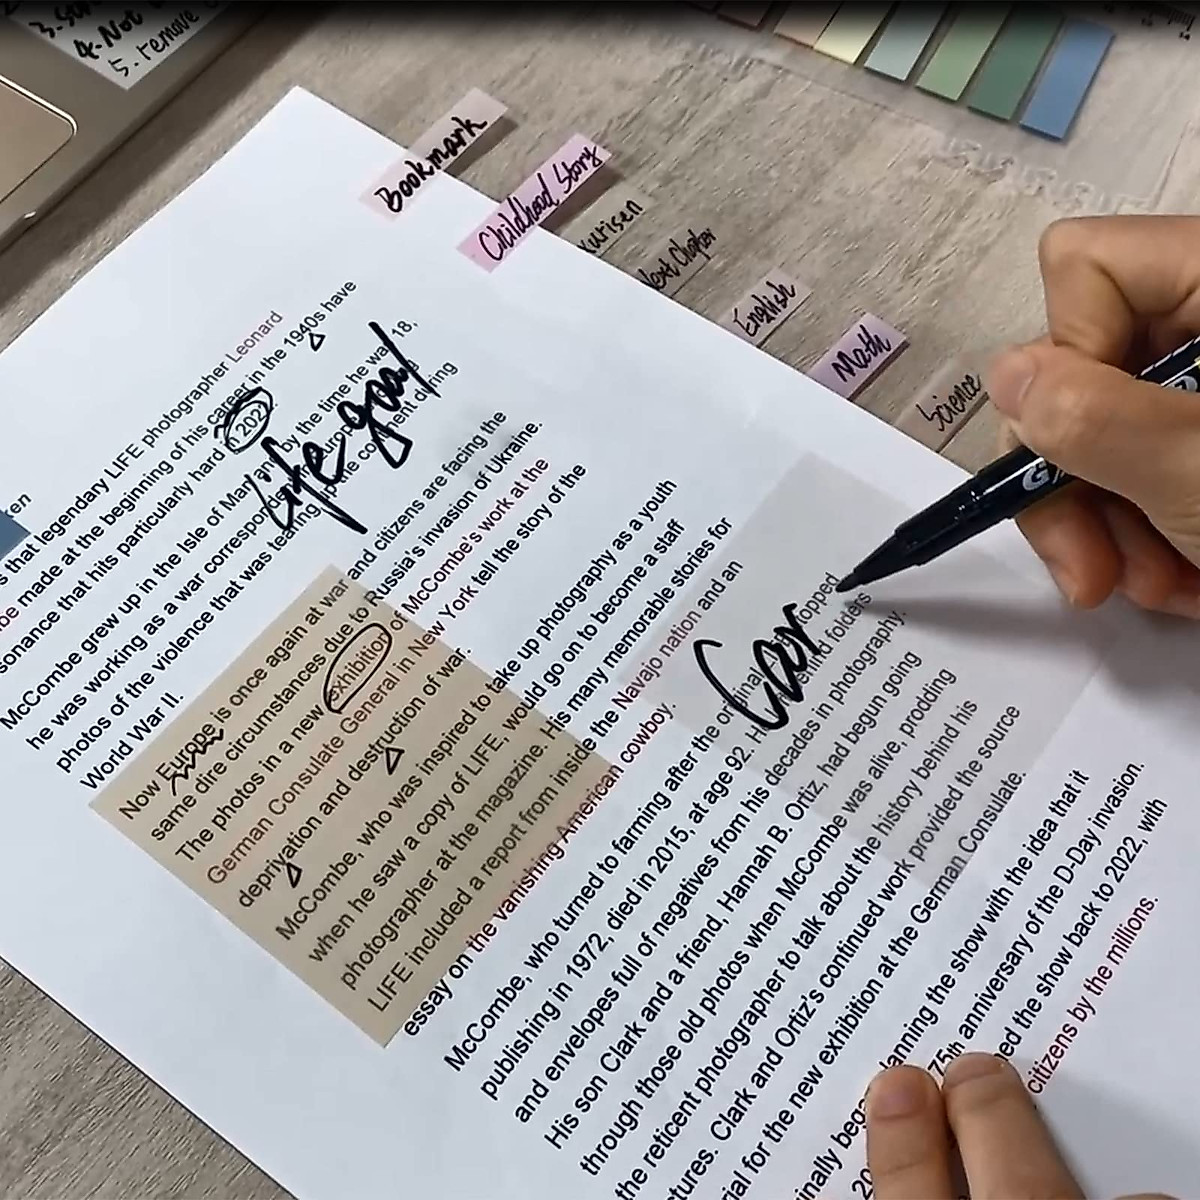 3.
4. Not
5. remove
Bookmark
Childhood Story
Next Chapter
English
Math
Science
Life goal
Cor
s that legendary LIFE photographer Leonard
be made at the beginning of his career in the 1940s have
sonance that hits particularly hard 202
McCombe grew up in the Isle of Man by the time he was 18.
he was working as a war
photos of the violence that was tearing
World War II.
Now Europe is once again at war and citizens are facing the
same dire circumstances due to Russia's invasion of Ukraine.
The photos in a new exhibition of McCombe's work at the
German Consulate General in New York tell the story of the
deprivation and destruction of war.
McCombe, who was inspired to take up photography as a youth
when he saw a copy of LIFE, would go on to become a staff
photographer at the magazine. His many memorable stories for
LIFE included a report from inside the Navajo nation and an
essay on the vanishing American cowboy.
McCombe, who turned to farming after the original
publishing in 1972, died in 2015, at age 92. folders
and envelopes full of negatives from his decades in photography.
His son Clark and a friend, Hannah B. Ortiz, had begun going
through those old photos when McCombe was alive, prodding
the reticent photographer to talk about the history behind his
tures. Clark and Ortiz's continued work provided the source
ial for the new exhibition at the German Consulate.
inally bega lanning the show with the idea that it
20 75th anniversary of the D-Day invasion.
ed the show back to 2022, with
citizens by the millions.